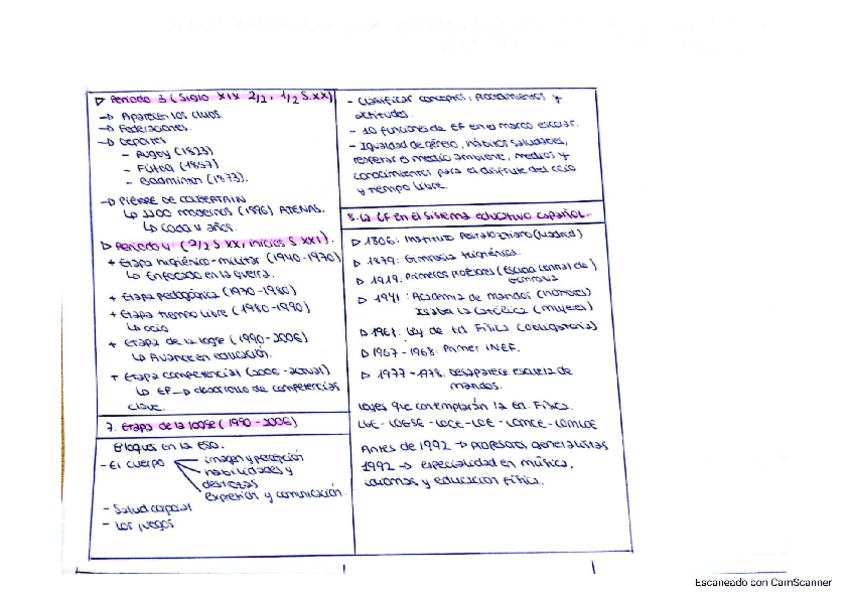 ▷ Periodo 3 (Siglo XIX 2/2, 1/2 S.XX)
→ Aparecen los clubs.
→ Federaciones.
→ Deportes
- Rugby (1823)
- Fútbol (1857)
- Badminton (1873).
→ PIERRE DE COUBERTAIN
↳ JJOO modernos (1896) ATENAS.
↳ Cada 4 años.
▷ Periodo 4 (2/2 S XX, inicios S XXI).
+ Etapa higiénico-militar (1940-1970)
↳ Enfocado en la guerra.
+ Etapa pedagógica (1970-1980)
+ Etapa tiempo libre (1980-1990)
↳ ocio
+ Etapa de la logse (1990-2006)
↳ Avance en educación.
+ Etapa competencial (2006-actual)
↳ EF → desarrollo de competencias
clave.
7. Etapa de la LOGSE (1990-2006)
Bloques en la ESO.
- El cuerpo
imagen y percepción
habilidades y
destrezas
Expresión y comunicación.
- Salud corporal
- Los juegos
- Clasificar conceptos, procedimientos y
actitudes.
- 10 funciones de EF en el marco escolar.
- Igualdad de género, hábitos saludables,
respetar el medio ambiente, medios y
conocimientos para el disfrute del ocio
y tiempo libre.
8. La EF en el sistema educativo español.
▷ 1806: Instituto Pestalozziano (Madrid)
▷ 1879: Gimnasia higiénica.
▷ 1919: Primeros profesores (Escuela central de
gimnasia)
▷ 1941: Academia de mandos (hombres)
Isabel la Católica (mujeres)
▷ 1961: Ley de Ed. Física (obligatoria)
▷ 1967-1968: Primer INEF.
▷ 1977-1978: desaparece escuela de
mandos.
Leyes que contemplarán la Ed. Física.
LGE-LOGSE-LOCE-LOE-LOMCE-LOMLOE
Antes de 1992 → profesores generalistas
1992 → especialidad en música,
idiomas y educación física.
Escaneado con CamScanner